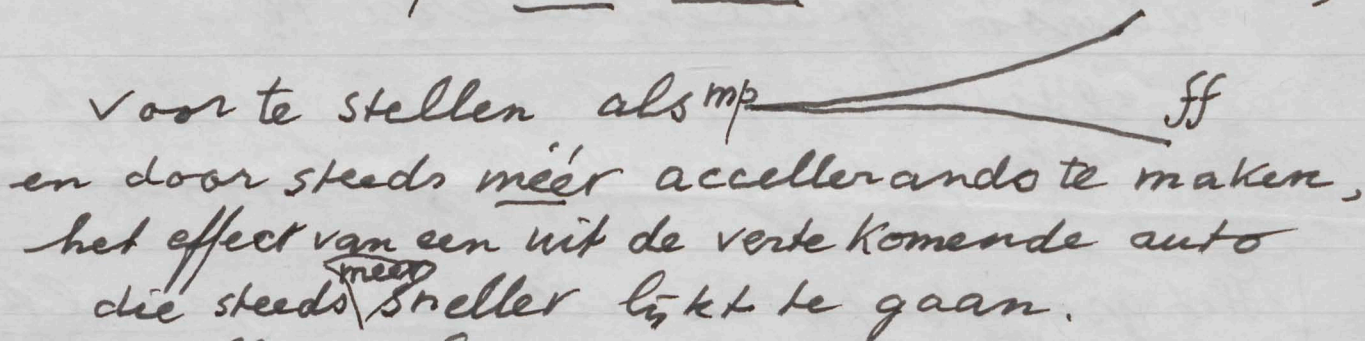 voor te stellen als mp ff
en door steeds méér accellerando te maken,
het effect van een uit de verte komende auto
meer
die steeds sneller lijkt te gaan.